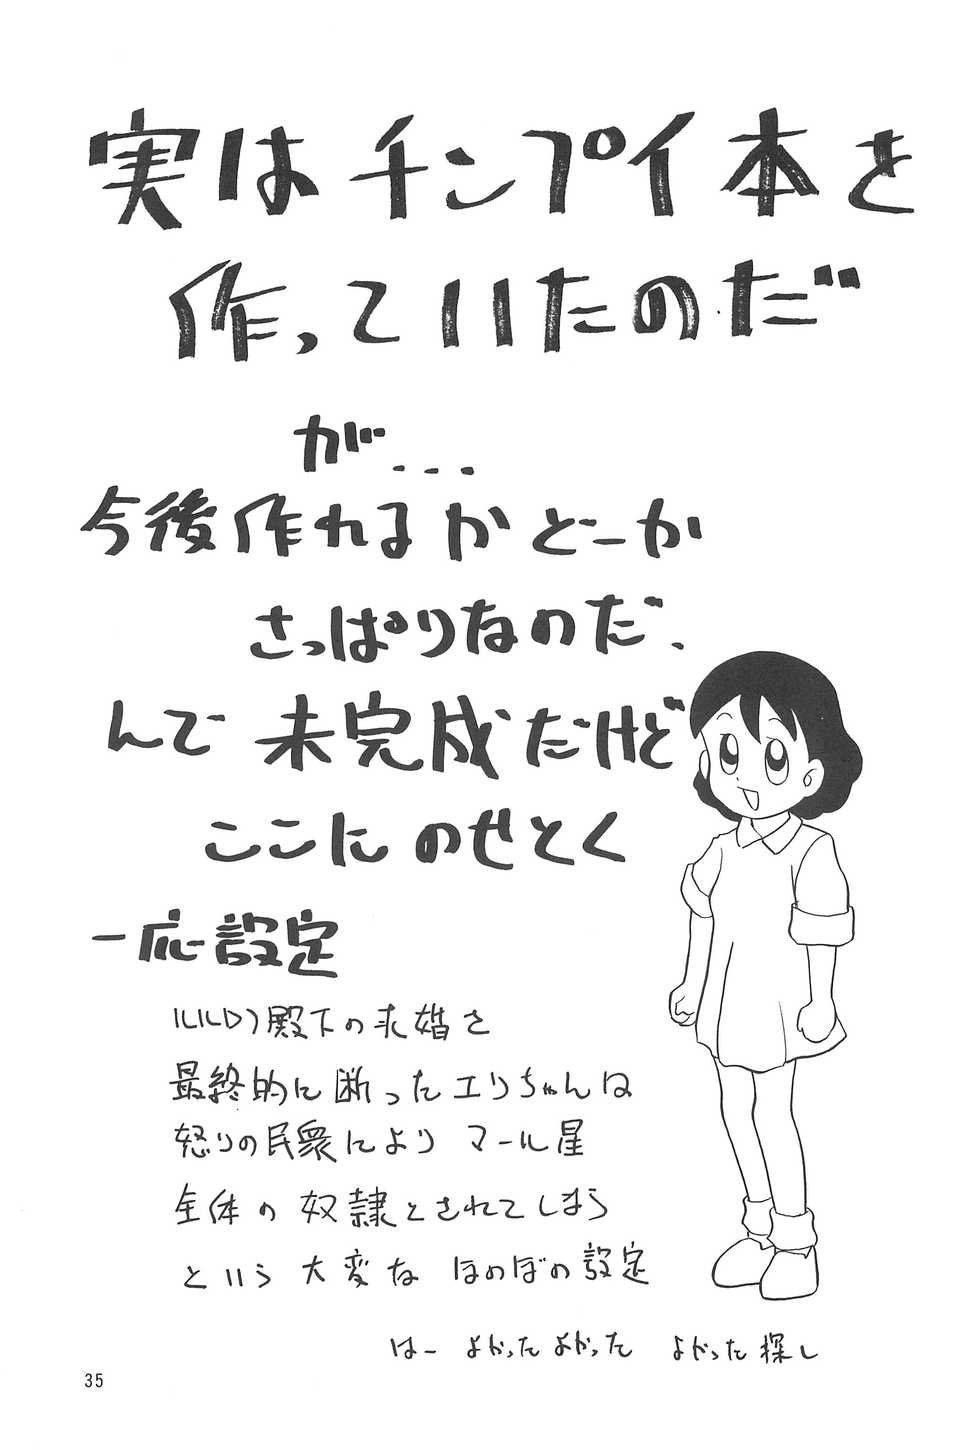 実はチンプイ本を
作っていたのだ
が...
今後作れるかどーか
さっぱりなのだ、
んで未完成だけど
ここにのせとく
一応設定
ルルロフ殿下の求婚を
最終的に断ったエリちゃんは
怒りの民衆により マール星
全体の奴隷とされてしまう
という 大変な ほのぼの設定
はー よかったよかった よかった探し
35